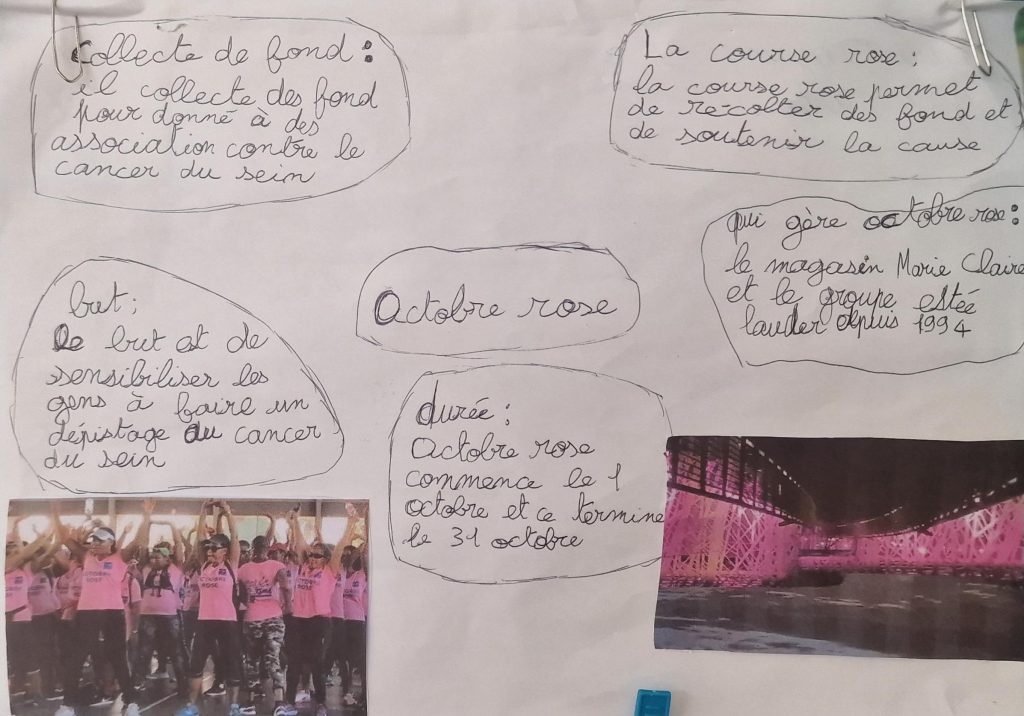 Collecte de fond :
il collecte des fond
pour donné à des
association contre le
cancer du sein
La course rose :
la course rose permet
de récolter des fond et
de soutenir la cause
qui gère octobre rose :
le magasin Marie Claire
et le groupe estée
lauder depuis 1994
Octobre rose
but :
Le but est de
sensibiliser les
gens à faire un
dépistage du cancer
du sein
durée :
Octobre rose
commence le 1
octobre et ce termine
le 31 octobre
OCTOBRE
ROSE
OCTOBRE
ROSE